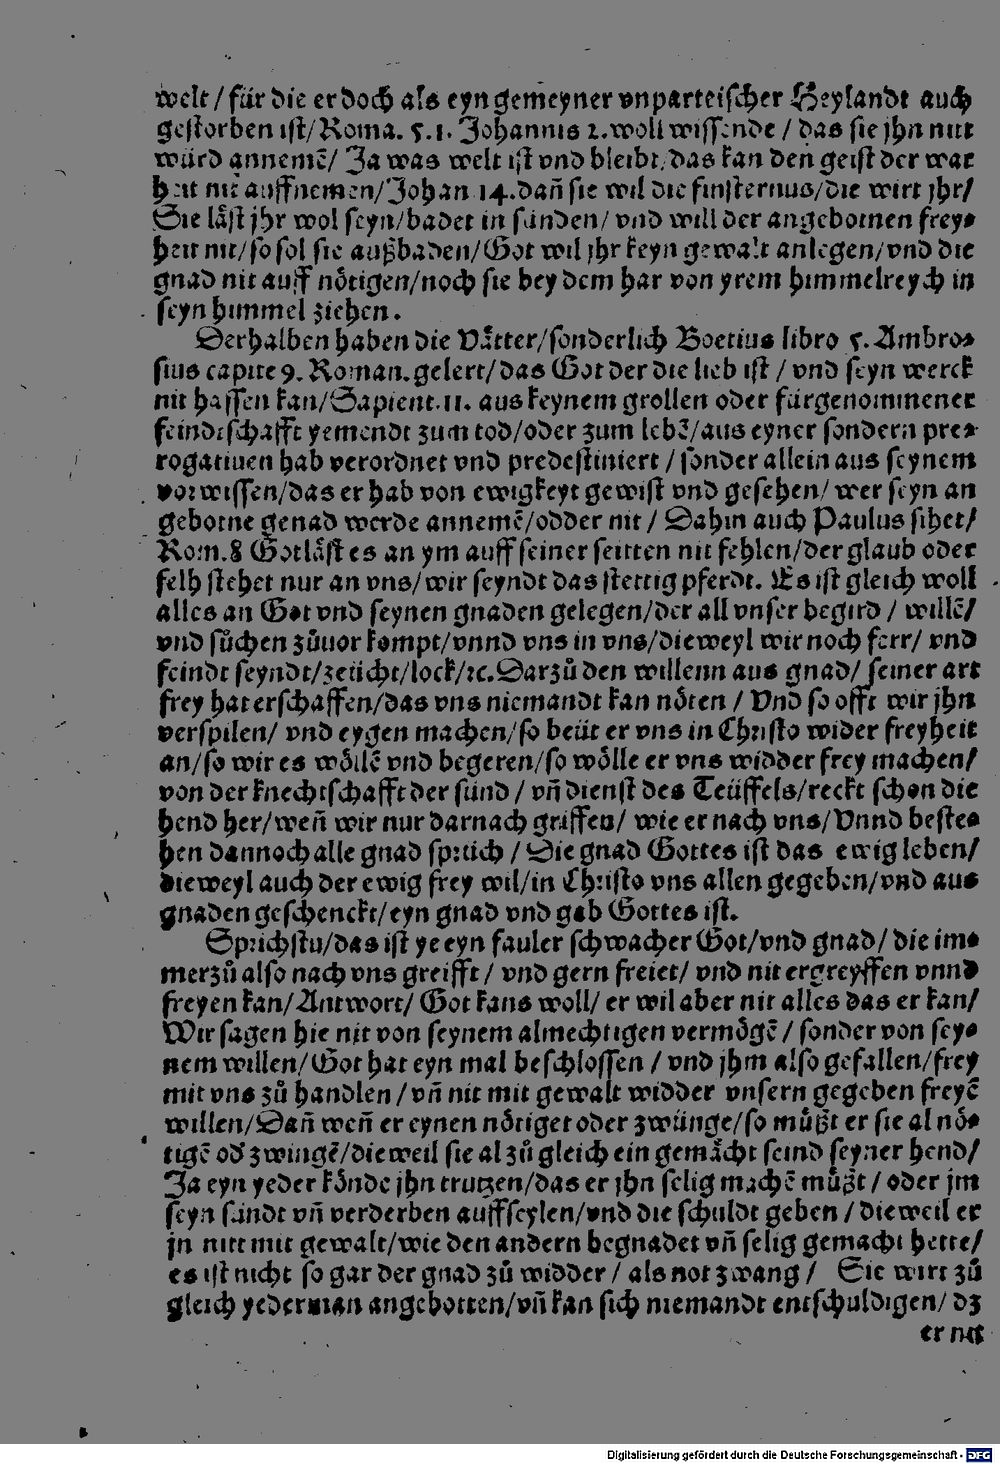 welt / für die er doch als eyn gemeyner vnparteischer Heylandt auch
gestorben ist/Roma. 5.1. Johannis 2. woll wissende / das sie jhn nitt
würd annemē/ Ja was welt ist vnd bleibt, das kan den geist der war
heit nit auffnemen/Johan 14. dañ sie wil die finsternus/die wirt jhr/
Sie läst jhr wol seyn/badet in sünden/ vnd will der angebotnen frey⸗
heit nit/so sol sie außbaden/Got wil jhr keyn gewalt anlegen/vnd die
gnad nit auff nötigen/noch sie bey dem har von yrem himmelreych in
seyn himmel ziehen.
Derhalben haben die Vätter/sonderlich Boetius libro 5. Ambro⸗
sius capite 9. Roman. gelert/das Got der die lieb ist / vnd seyn werck
nit hassen kan/Sapient. 11. aus keynem grollen oder fürgenommener
feindtschafft yemendt zum tod/oder zum lebē/aus eyner sondern pre⸗
rogatiuen hab verordnet vnd predestiniert / sonder allein aus seynem
vorwissen/das er hab von ewigkeyt gewist vnd gesehen/ wer seyn an
gebotne genad werde annemē/odder nit / Dahin auch Paulus sihet/
Rom. 8 Got läst es an ym auff seiner seitten nit fehlen/der glaub oder
felh stehet nur an vns/wir seyndt das stettig pferdt. Es ist gleich woll
alles an Got vnd seynen gnaden gelegen/der all vnser begird / willē/
vnd sůchen zůuor kompt/vnnd vns in vns/dieweyl wir noch ferr/ vnd
feindt seyndt/zeücht/lock/ꝛc. Darzů den willenn aus gnad/ seiner art
frey hat erschaffen/das vns niemandt kan nöten / Vnd so offt wir jhn
verspilen/ vnd eygen machen/so beüt er vns in Christo wider freyheit
an/so wir es wöllē vnd begeren/so wölle er vns widder frey machen/
von der knechtschafft der sünd / vñ dienst des Teüffels/reckt schon die
hend her/weñ wir nur darnach griffen/ wie er nach vns/Vnnd beste⸗
hen dannoch alle gnad sprüch / Die gnad Gottes ist das ewig leben/
dieweyl auch der ewig frey wil/in Christo vns allen gegeben/vnd aus
gnaden geschenckt/eyn gnad vnd gab Gottes ist.
Sprichstu/das ist ye eyn fauler schwacher Got/vnd gnad/ die im⸗
merzů also nach vns greifft / vnd gern freiet/ vnd nit ergreyffen vnnd
freyen kan/ Antwort/ Got kans woll/ er wil aber nit alles das er kan/
Wir sagen hie nit von seynem almechtigen vermögē / sonder von sey⸗
nem willen/Got hat eyn mal beschlossen / vnd jhm also gefallen/frey
mit vns zů handlen / vñ nit mit gewalt widder vnsern gegeben freyē
willen/Dañ weñ er eynen nötiget oder zwünge/so můßt er sie al nö⸗
tigē od' zwingē/dieweil sie al zů gleich ein gemächt seind seyner hend/
Ja eyn yeder könde jhn trutzen/das er jhn selig machē müßt / oder jm
seyn sündt vñ verderben auffseylen/vnd die schuldt geben / dieweil er
jn nitt mit gewalt/wie den andern begnadet vñ selig gemacht hette/
es ist nicht so gar der gnad zů widder / als not zwang / Sie wirt zů
gleich yederman angebotten/vñ kan sich niemandt entschuldigen/ dz
er nit
Digitalisierung gefördert durch die Deutsche Forschungsgemeinschaft - DFG